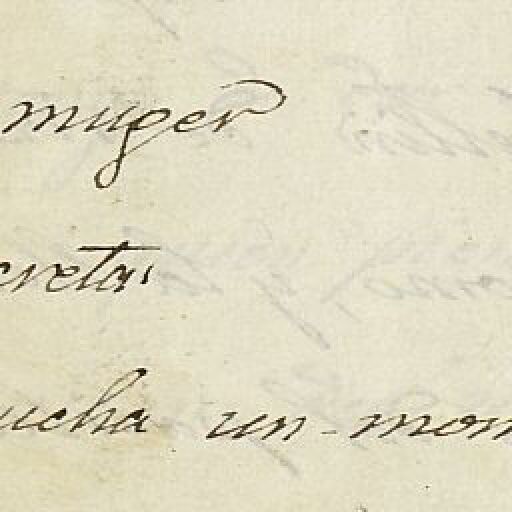 muger
creta
ucha un mom